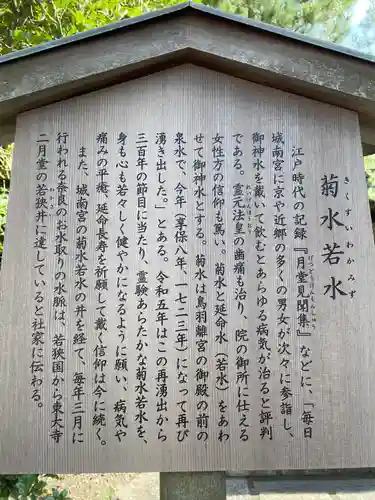 菊水若水
きくすいわかみず
江戸時代の記録『月堂見聞集』などに、「毎日
げつどうけんもんしゅう
城南宮に京や近郷の多くの男女が次々に参詣し、
御神水を戴いて飲むとあらゆる病気が治ると評判
である。霊元法皇の歯痛も治り、院の御所に仕える
れいげんほうおう
女性方の信仰も篤い。菊水と延命水(若水)をあわ
せて御神水とする。菊水は鳥羽離宮の御殿の前の
泉水で、今年(享保八年、一七二三年)になって再び
湧き出した。」とある。令和五年はこの再湧出から
三百年の節目に当たり、霊験あらたかな菊水若水を、
身も心も若々しく健やかになるように願い、病気や
痛みの平癒、延命長寿を祈願して戴く信仰は今に続く。
また、城南宮の菊水若水の井を経て、毎年三月に
行われる奈良のお水取りの水脈は、若狭国から東大寺
二月堂の若狭井に達していると社家に伝わる。
わかさい